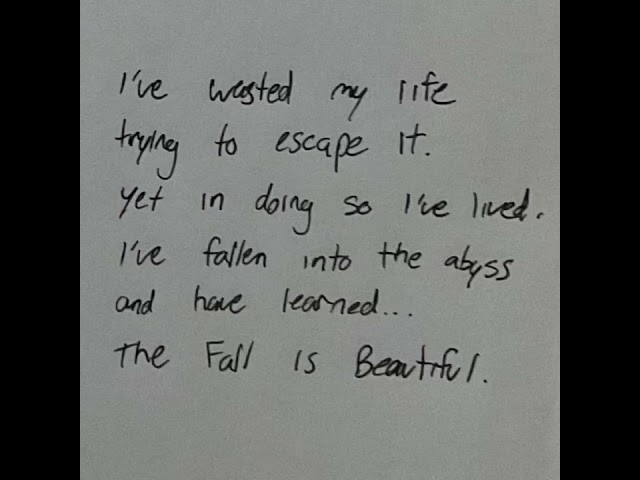 I've wasted my life
trying to escape it.
Yet in doing so I've lived.
I've fallen into the abyss
and have learned...
The Fall is Beautiful.